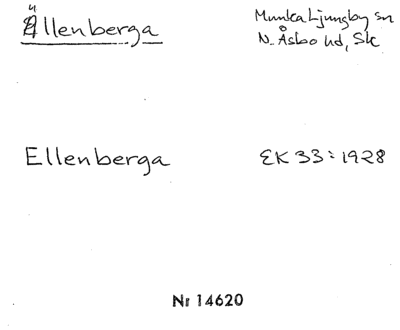 Ällenberga
Munka Ljungby sn
N. Åsbo hd, Sk
Ellenberga
EK 33:1928
Nr 14620